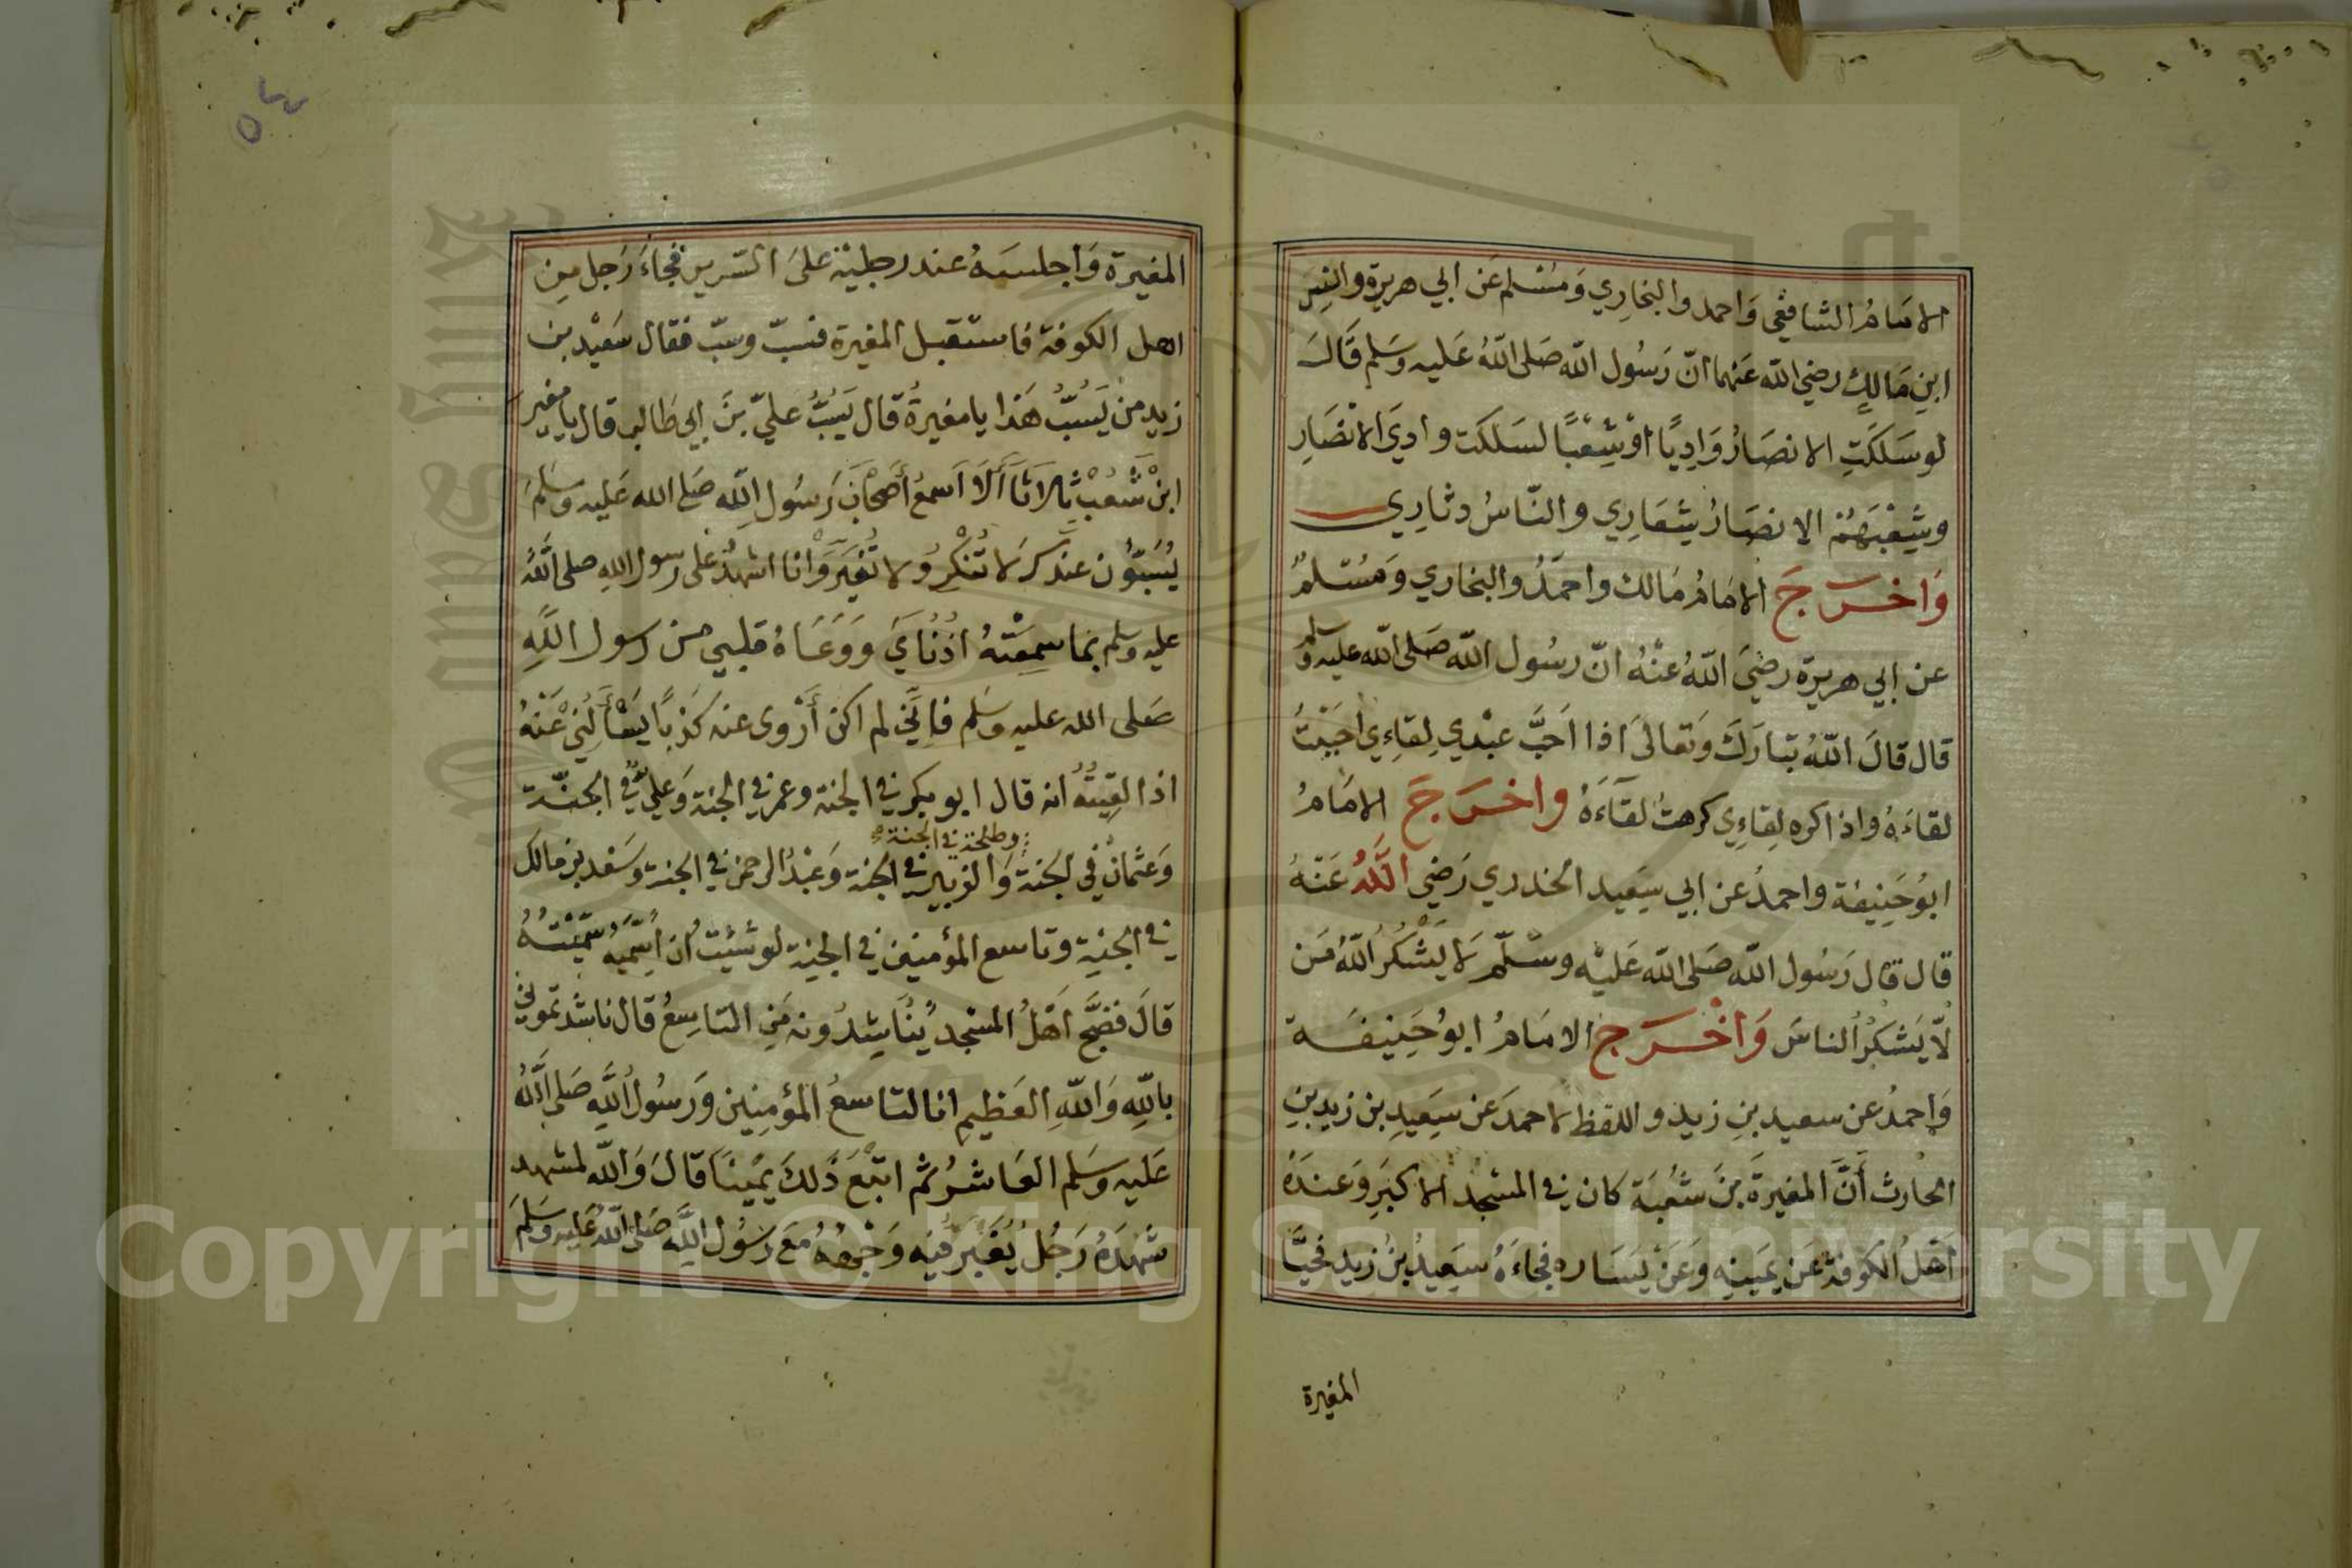 الامام الشافعي واحمد والبخاري ومسلم عن ابي هريرة وانس
ابن مالك رضي الله عنهما ان رسول الله صلى الله عليه وسلم قال
لو سلكت الانصار واديا او شعبا لسلكت وادي الانصار
وشعبهم الانصار شعاري والناس دثاري
واخرج الامام مالك واحمد والبخاري ومسلم
عن ابي هريرة رضي الله عنه ان رسول الله صلى الله عليه وسلم
قال قال الله تبارك وتعالى اذا احب عبدي لقاءي احببت
لقاءه واذا كره لقاءي كرهت لقاءه واخرج الامام
ابو حنيفة واحمد عن ابي سعيد الخدري رضي الله عنه
قال قال رسول الله صلى الله عليه وسلم لا يشكر الله من
لا يشكر الناس واخرج الامام ابو حنيفة
واحمد عن سعيد بن زيد واللفظ لاحمد عن سعيد بن زيد بن
الحارث أن المغيرة بن شعبة كان في المسجد الاكبر وعنده
اهل الكوفة عن يمينه وعن يساره فجاءه سعيد بن زيد فحيا
المغيرة
٥٤
المغيرة واجلسه عند رجليه على السرير فجاء رجل من
اهل الكوفة فاستقبل المغيرة فسب وسب فقال سعيد بن
زيد من يسب هذا يا مغيرة قال يسب علي بن ابي طالب قال يا مغير
ابن شعب ثلاثا ألا اسمع أصحاب رسول الله صلى الله عليه وسلم
يسبون عندك لا تنكر ولا تغير وانا اشهد على رسول الله صلى الله
عليه وسلم بما سمعته اذناي ووعاه قلبي من رسول الله
صلى الله عليه وسلم فإني لم اكن أروى عنه كذبا يسألني عنه
اذا لقيته انه قال ابو بكر في الجنة وعمر في الجنة وعلي في الجنة
وطلحة في الجنة
وعثمان في الجنة والزبير في الجنة وعبد الرحمن في الجنة وسعد بن مالك
في الجنة وتاسع المؤمنين في الجنة لو شئت ان اسميه سميته
قال فضج اهل المسجد يناشدونه من التاسع قال ناشدتموني
بالله والله العظيم انا التاسع المؤمنين ورسول الله صلى الله
عليه وسلم العاشر ثم اتبع ذلك يمينا قال والله لمشهد
شهده رجل يغبر فيه وجهه مع رسول الله صلى الله عليه وسلم
Copyright © King Saud University